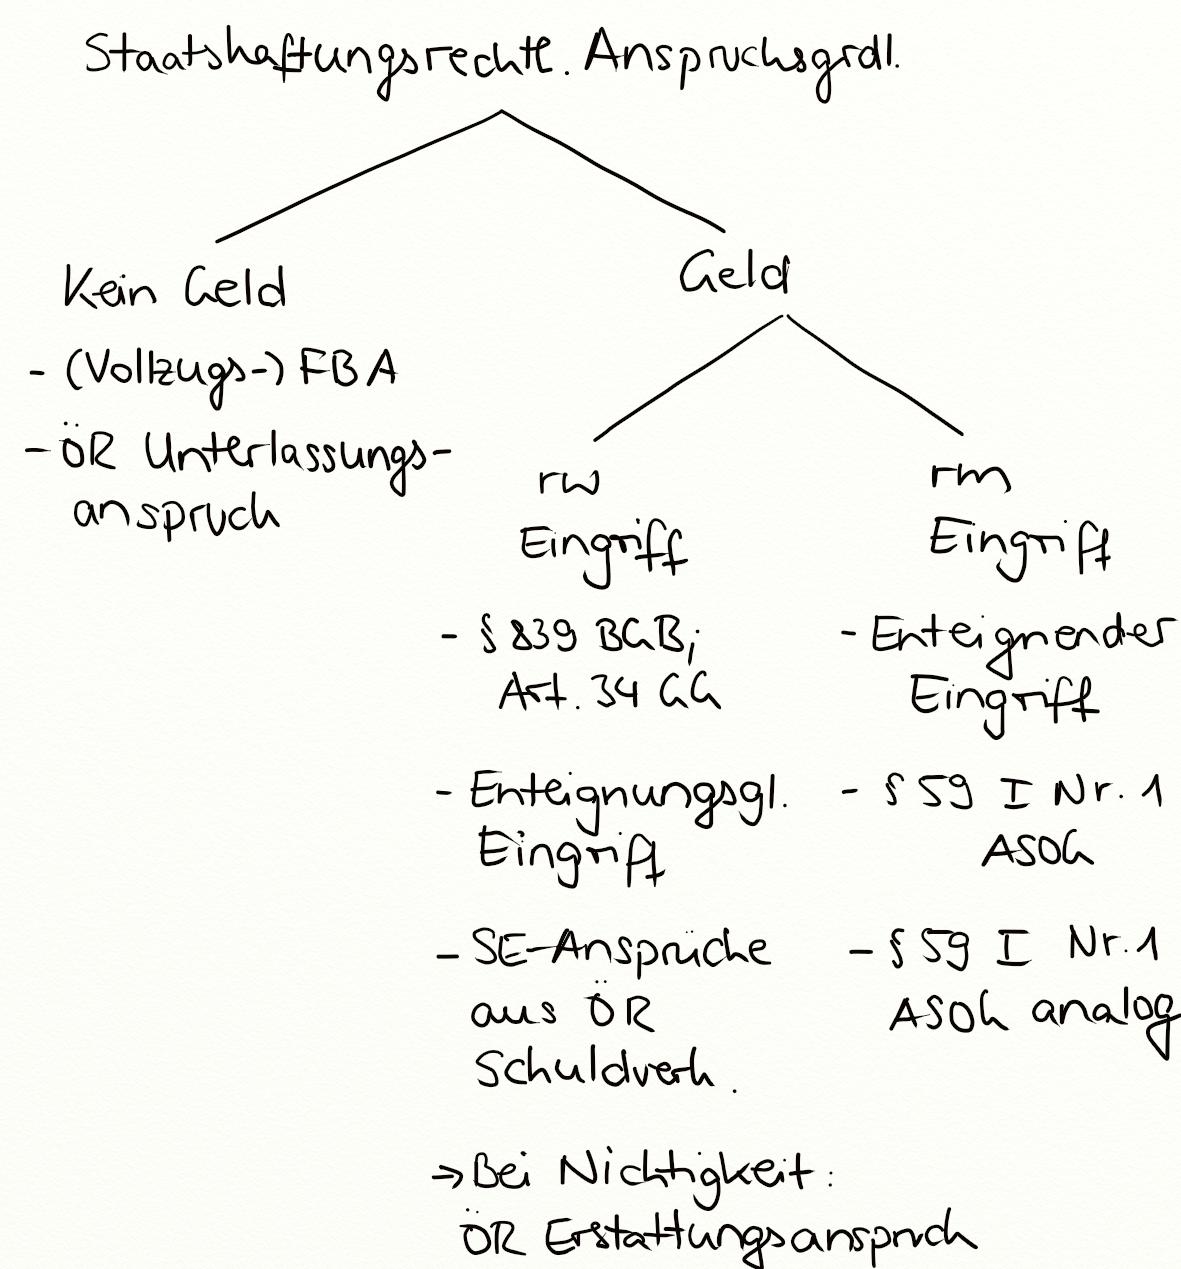 Staatshaftungsrechtl. Anspruchsgrdl.
Kein Geld
- (Vollzugs-) FBA
- ÖR Unterlassungs-
anspruch
Geld
rw
Eingriff
- § 839 BGB;
Art. 34 GG
- Enteignungsgl.
Eingriff
- SE-Ansprüche
aus ÖR
Schuldverh.
→ Bei Nichtigkeit:
ÖR Erstattungsanspruch
rm
Eingriff
- Enteignender
Eingriff
- § 59 I Nr. 1
ASOG
- § 59 I Nr. 1
ASOG analog